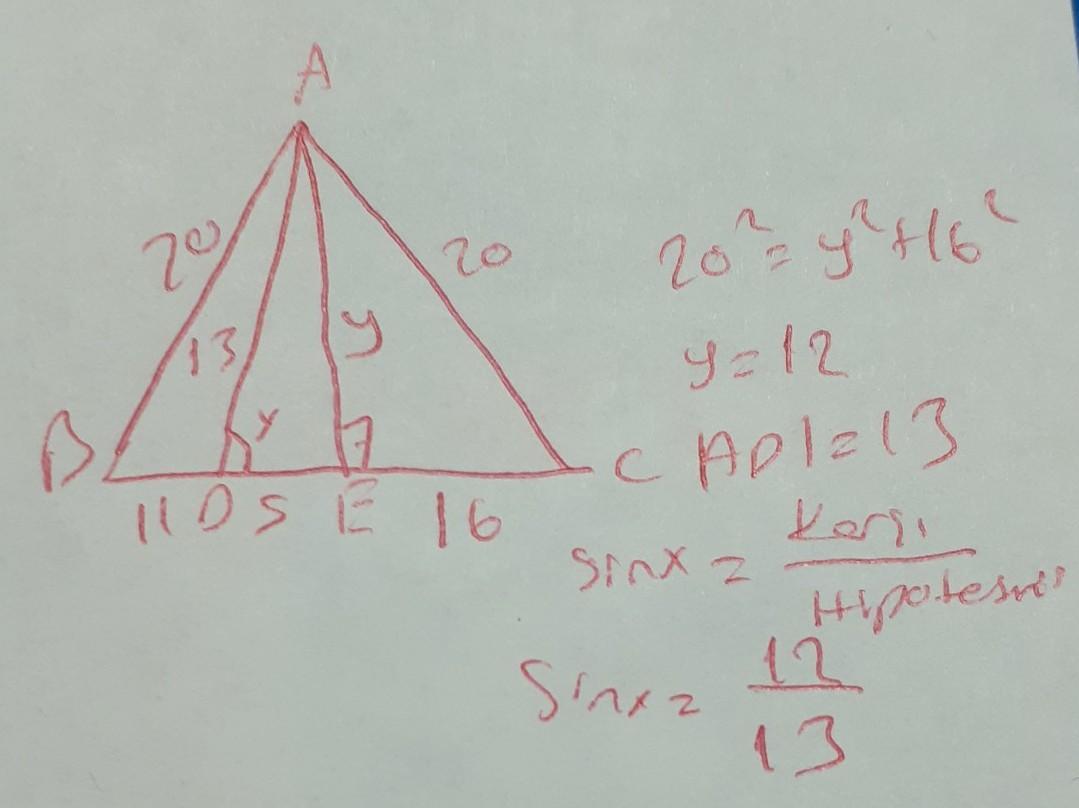 A
20
20
13
y
x
B
C
11 D 5 E 16
20² = y² + 16²
y = 12
AD| = 13
sinx = Karşı / Hipotenüs
Sinx = 12 / 13